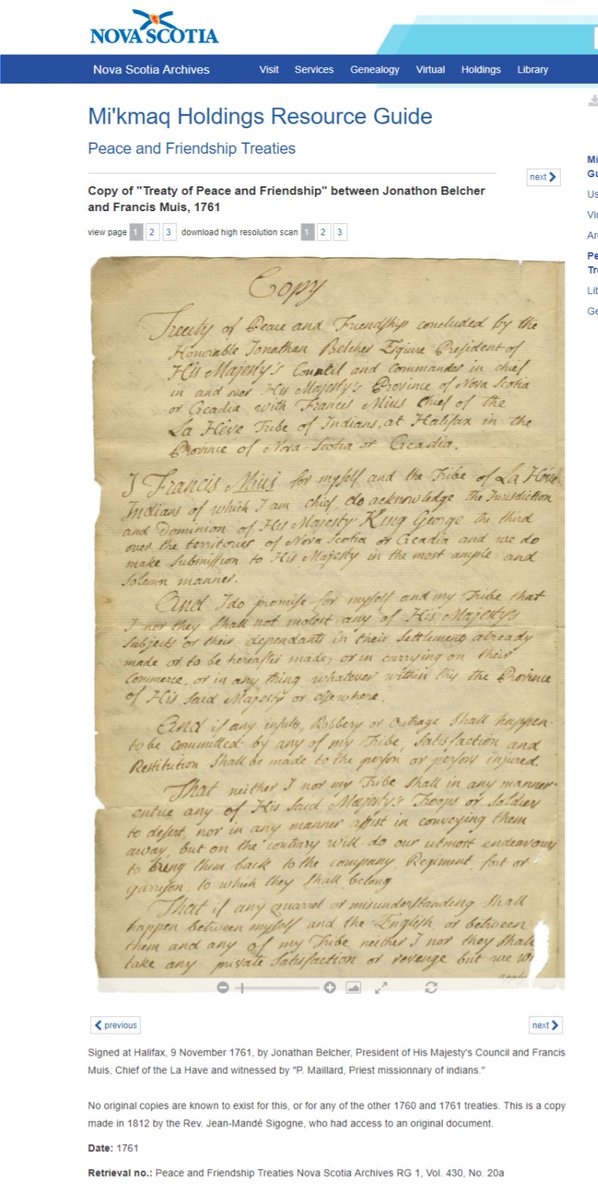 NOVA SCOTIA
Nova Scotia Archives Visit Services Genealogy Virtual Holdings Library
Mi'kmaq Holdings Resource Guide
Peace and Friendship Treaties
next
Copy of "Treaty of Peace and Friendship" between Jonathon Belcher
and Francis Muis, 1761
view page 1 2 3 download high resolution scan 1 2 3
Mi
Gu
Us
Vir
Ar
Pe
Tre
Lib
Ge
Copy
Treaty of Peace and Friendship concluded by the
Honorable Jonathan Belcher Esqiure President of
His Majesty's Council and Commander in chief
in and over His Majesty's Province of Nova Scotia
or Accadia with Francis Mius chief of the
La Hève Tribe of Indians, at Halifax in the
Province of Nova-Scotia or Accadia.
I Francis Mius for myself and the Tribe of La Hève
Indians of which I am chief do acknowledge the Jurisdiction
and Dominion of His Majesty King George the third
over the territories of Nova Scotia or Accadia and we do
make submission to His Majesty in the most ample and
solemn manner.
And I do promise for myself and my Tribe that
I nor they shall not molest any of His Majesty's
subjects or their dependants in their settlements already
made or to be hereafter made; or in carrying on their
Commerce, or in any thing whatever within this the Province
of His said Majesty or elsewhere.
And if any insult, Robbery or Outrage shall happen
to be committed by any of my Tribe, satisfaction and
Restitution shall be made to the person or persons injured.
That neither I nor my Tribe shall in any manner
entice any of His said Majesty's Troops or soldiers
to desert, nor in any manner assist in conveying them
away, but on the contrary will do our utmost endeavours
to bring them back to the company, Regiment, fort or
garrison to which they shall belong
That if any quarrel or misunderstanding shall
happen between myself and the English, or between
them and any of my Tribe neither I nor they shall
take any private satisfaction or revenge but we
previous next
Signed at Halifax, 9 November 1761, by Jonathan Belcher, President of His Majesty's Council and Francis
Muis, Chief of the La Have and witnessed by "P. Maillard, Priest missionnary of indians."
No original copies are known to exist for this, or for any of the other 1760 and 1761 treaties. This is a copy
made in 1812 by the Rev. Jean-Mandé Sigogne, who had access to an original document.
Date: 1761
Retrieval no.: Peace and Friendship Treaties Nova Scotia Archives RG 1, Vol. 430, No. 20a